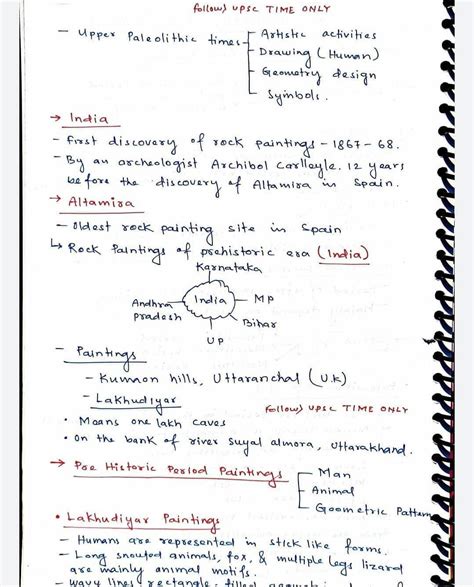 follow) UPSC TIME ONLY
- Upper Paleolithic times - Artistic activities
- Drawing (Human)
- Geometry design
- Symbols.
→ India
- first discovery of rock paintings - 1867-68.
- By an archeologist Archibol Carlleyle. 12 years
before the discovery of Altamira in Spain.
→ Altamira
- Oldest rock painting site in Spain
↳ Rock Paintings of prehistoric era (India)
Karnataka
Andhra pradesh
India
MP
Bihar
UP
- Paintings
- Kumaon hills, Uttaranchal (U.K)
- Lakhudiyar
follow) UPSC TIME ONLY
• Means one lakh caves
• On the bank of river Suyal almora, Uttarakhand.
→ Pre Historic Period Paintings - Man
- Animal
- Geometric Pattern
• Lakhudiyar Paintings
- Humans are represented in stick like forms.
- Long snouted animals, fox, & multiple legs lizard
are mainly animal motifs.
- wavy lines rectangle - filled